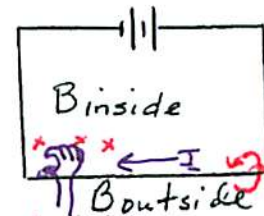 Binside
x x x
I
Boutside